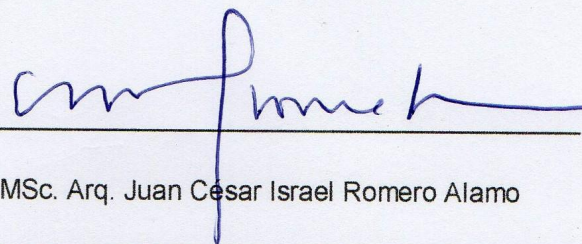 MSc. Arq. Juan César Israel Romero Alamo